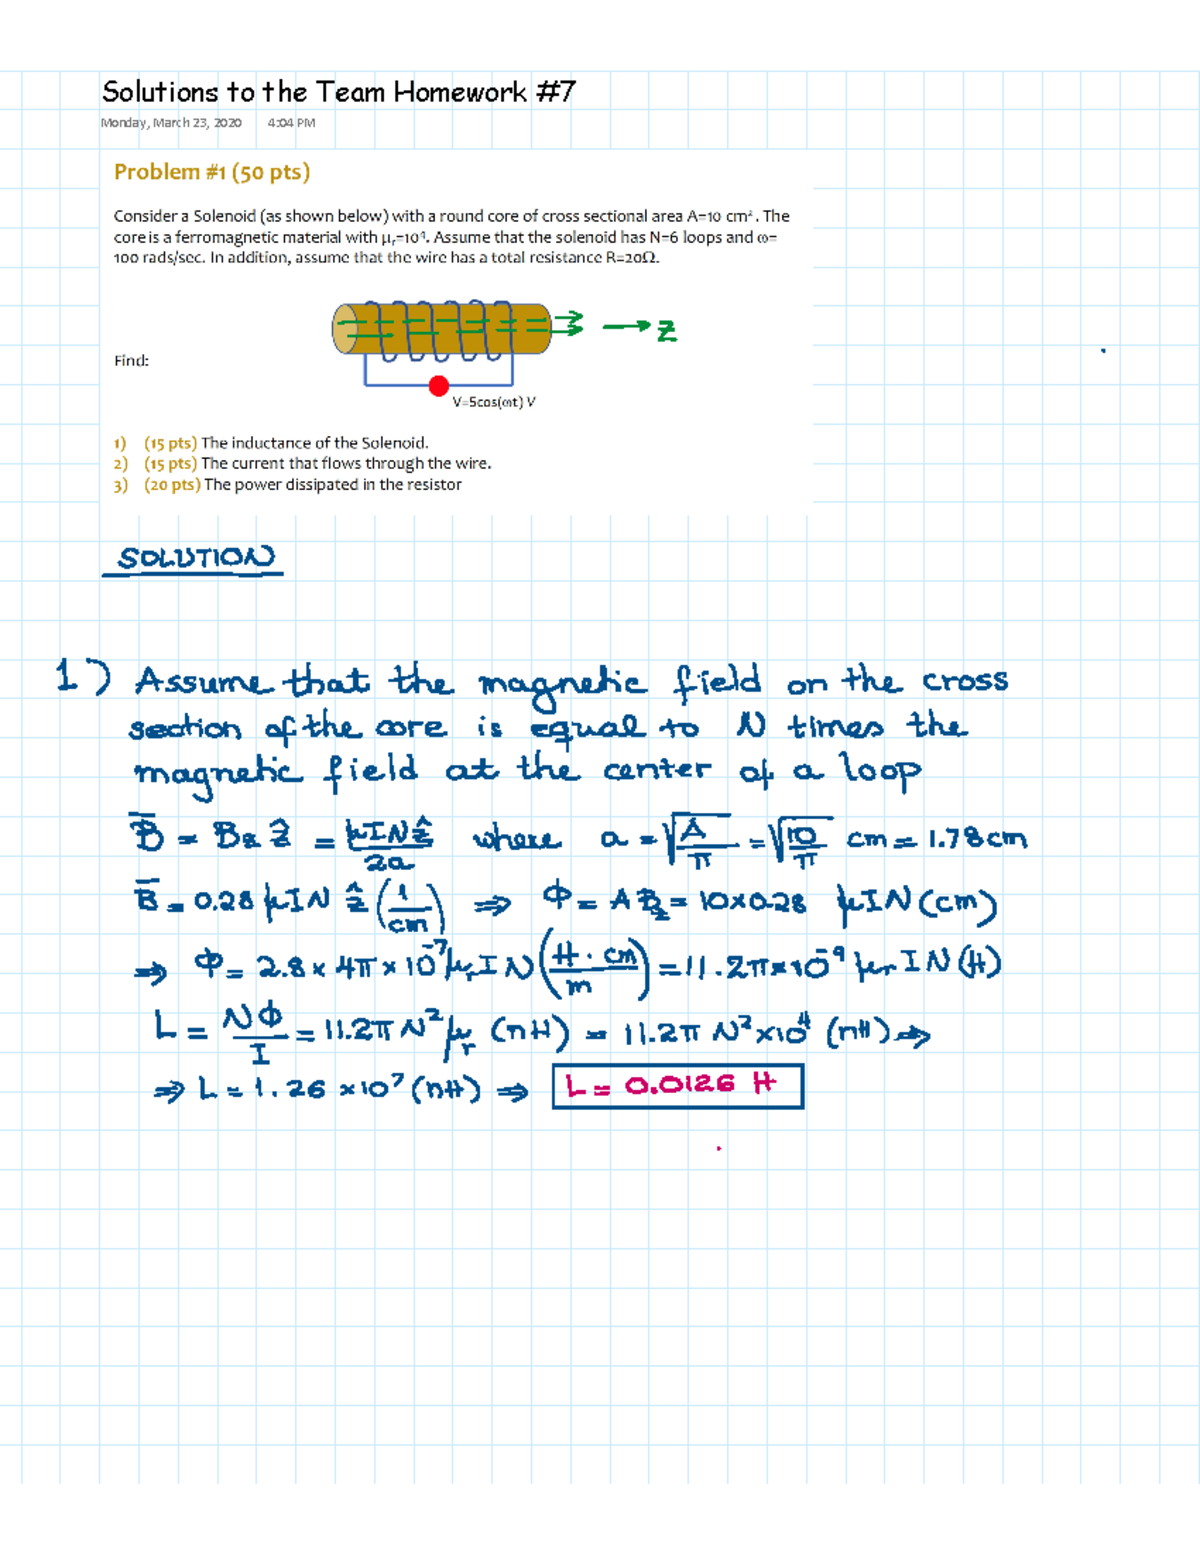 Solutions to the Team Homework #7
Monday, March 23, 2020 4:04 PM
Problem #1 (50 pts)
Consider a Solenoid (as shown below) with a round core of cross sectional area A=10 cm². The
core is a ferromagnetic material with μr=10⁴. Assume that the solenoid has N=6 loops and ω=
100 rads/sec. In addition, assume that the wire has a total resistance R=20Ω.
Z
Find:
V=5cos(ωt) V
1) (15 pts) The inductance of the Solenoid.
2) (15 pts) The current that flows through the wire.
3) (20 pts) The power dissipated in the resistor
SOLUTION
1) Assume that the magnetic field on the cross
section of the core is equal to N times the
magnetic field at the center of a loop
B̄ = Bz ẑ = μINẑ/2a where a = √(A/π) = √(10/π) cm = 1.78cm
B̄ = 0.28 μIN ẑ (1/cm) ⇒ Φ = ABz = 10×0.28 μIN (cm)
⇒ Φ = 2.8 × 4π × 10⁻⁷ μr IN (H·cm/m) = 11.2π×10⁻⁹ μr IN (H)
L = NΦ/I = 11.2π N² μr (nH) = 11.2π N²×10⁴ (nH) ⇒
⇒ L = 1.26 ×10⁷ (nH) ⇒ L = 0.0126 H